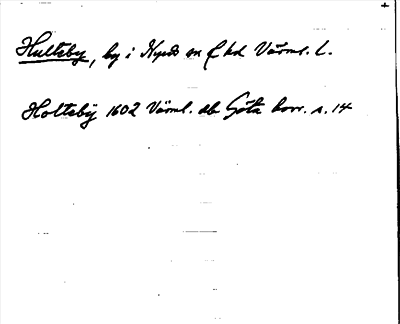 Hultsby, by i Nyeds sn f hd Värml. L.
Holtsbÿ 1602 Värml. ab Göta korr. s. 14